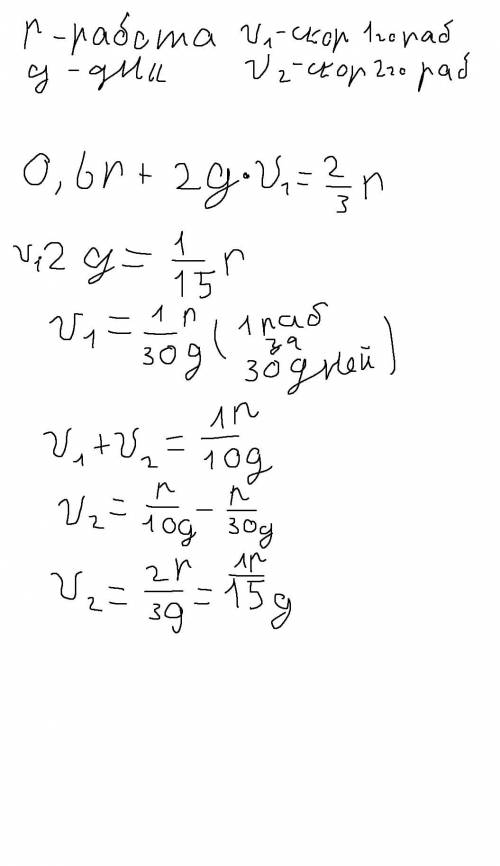 r - работа v₁-скор 1го раб
g - дни v₂-скор 2го раб
0,6r + 2g·v₁ = 2/3 r
v₁2 g = 1/15 r
v₁ = 1r/30g (1 раб за 30 дней)
v₁+v₂ = 1r/10g
v₂ = r/10g - r/30g
v₂ = 2r/3g = 1r/15g